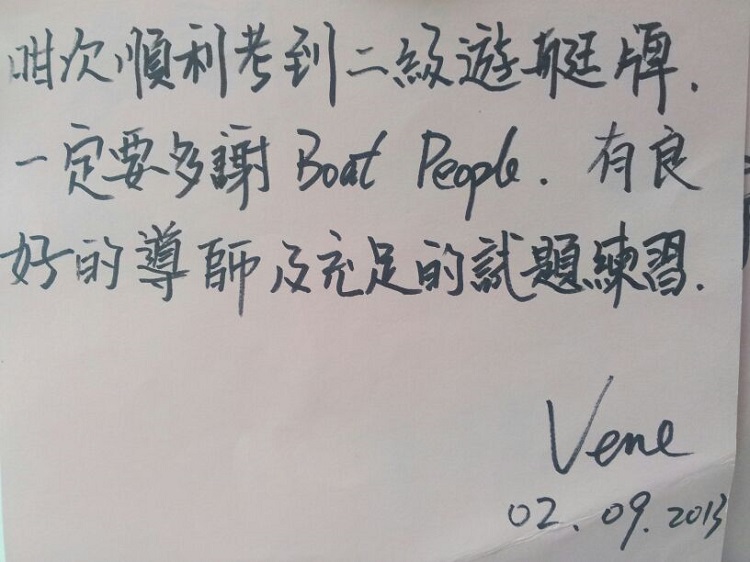 咁次順利考到二級遊艇牌.
一定要多謝 Boat People. 有良
好的導師及充足的試題練習.
Vene
02.09.2013